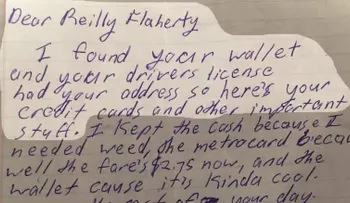 Dear Reilly Flaherty
I found your wallet
and your drivers license
had your address so here's your
credit cards and other important
stuff. I kept the cash because I
needed weed, the metrocard
well the fare's $2.75 now, and the
wallet cause it's kinda cool.
your day.